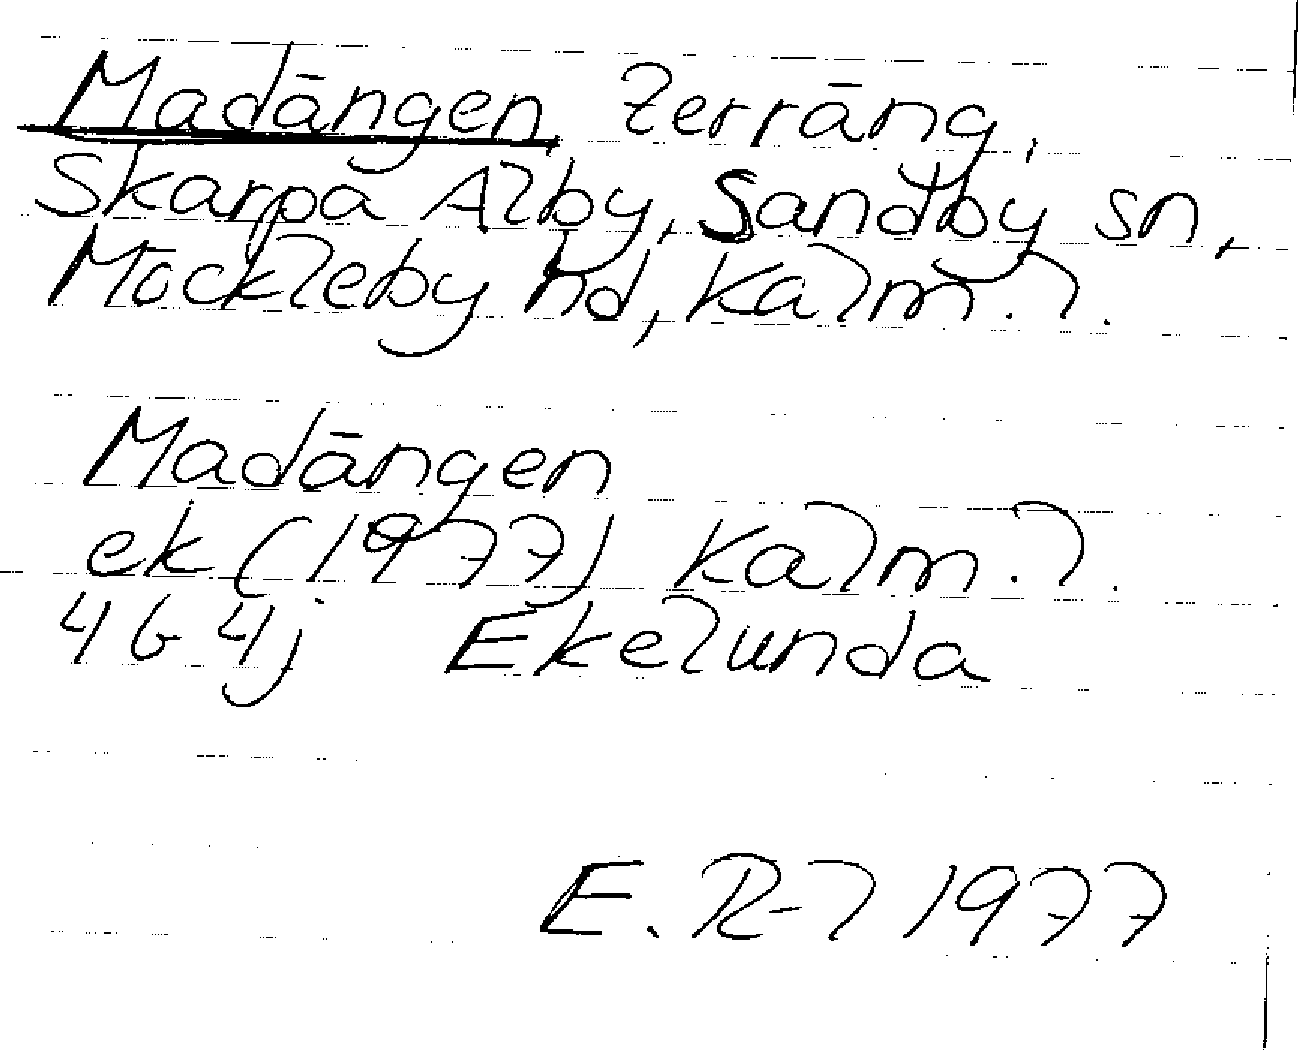 Madängen Terräng,
Skarpa Alby, Sandby sn,
Möckleby hd, Kalm. l.
Madängen
ek (1977) Kalm. l.
4G4j Ekelunda
E. R-l 1977